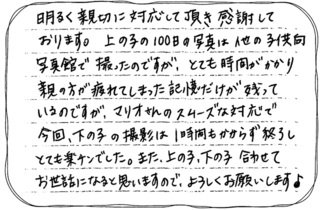 明るく親切に対応して頂き感謝して
おります。上の子の100日の写真は他の子供向
写真館で撮ったのですが、とても時間がかかり
親の方が疲れてしまった記憶だけが残って
いるのですが、マリオさんのスムーズな対応で
今回、下の子の撮影は1時間もかからず終了し
とても楽チンでした。また、上の子、下の子合わせて
お世話になると思いますので、よろしくお願いします♪